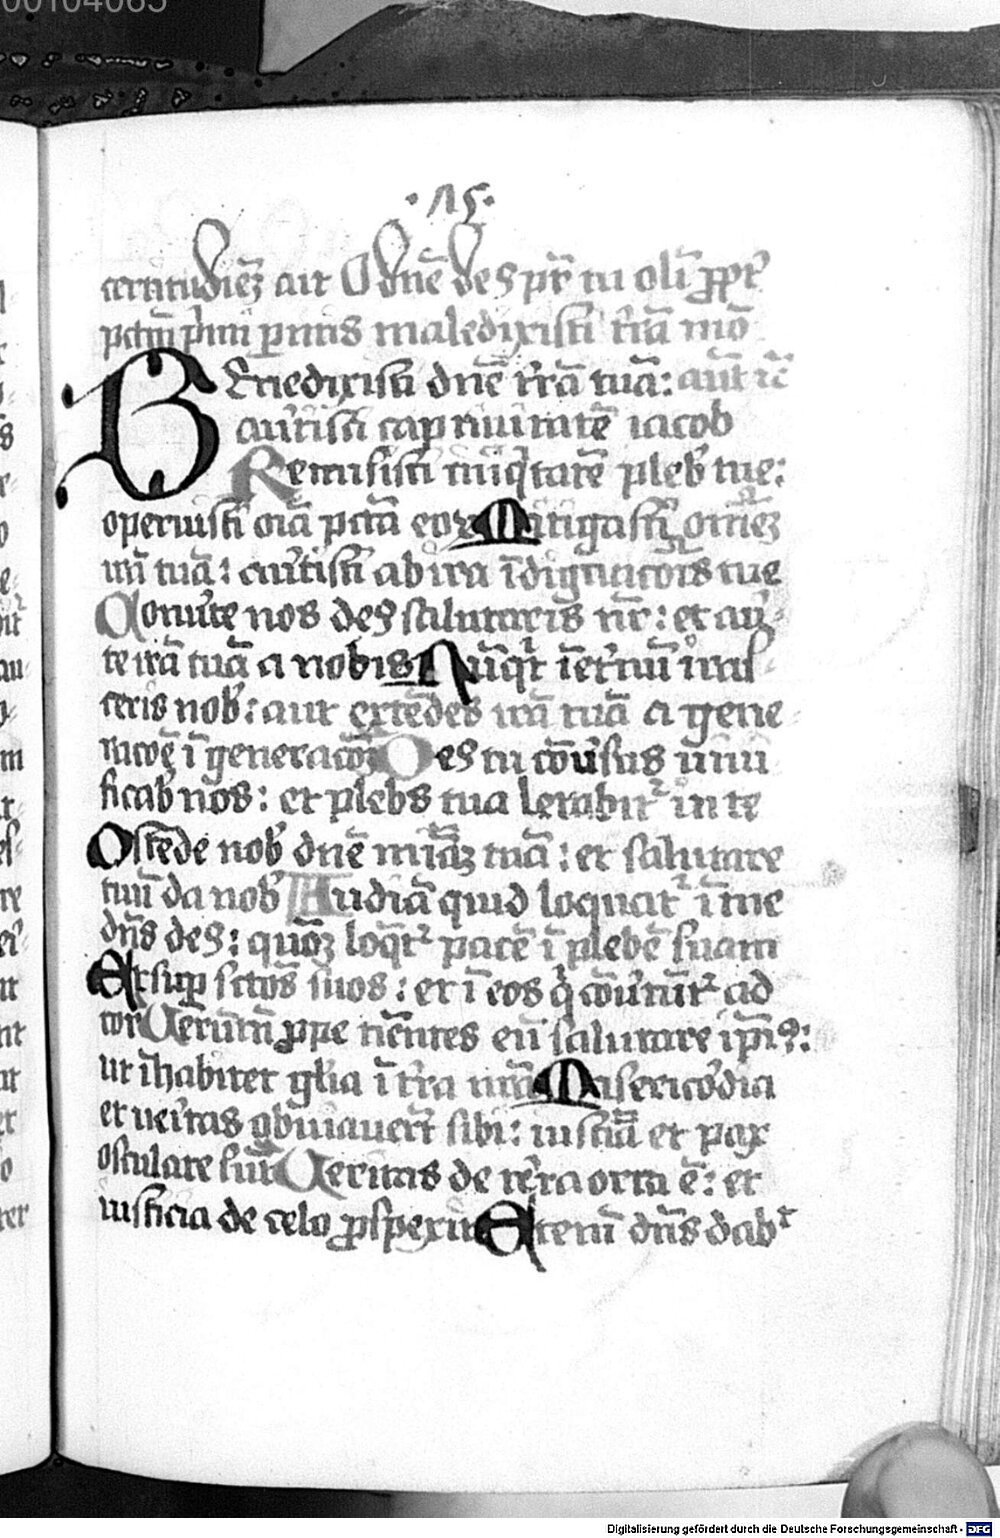 00104065
·15·
certitudiez ait O dne deus pr tu oli ppt
pctm pmi parentis maledixisti tra mo
Benedixisti dne tra tua: aut tc
auertisti captiuitate iacob
Remisisti iniqtate pleb tue:
operuisti oia pcta eor Mitigasti omez
ira tua: auertisti ab ira idignacois tue
Conute nos deus salutaris nr: et au-
te ira tua a nobis Nuqt ietnu iras-
ceris nob: aut extedes ira tua a gene-
racoe i generacoe Deus tu couersus uiui
ficab nos: et plebs tua letabit in te
Ostede nob dne miaz tua: et salutare
tuu da nob Audia quid loquat i me
dns deus: quoz loqt pace i plebe suam
Et sup sctos suos: et i eos q couertut ad
cor Uerutn ppe timentes eu salutare ipius:
ut ihabitet glia i tra nra Misericordia
et ueritas obuiauert sibi: iusticia et pax
osculate sut Ueritas de terra orta e: et
iusticia de celo prospexit Etenim dns dabit
Digitalisierung gefördert durch die Deutsche Forschungsgemeinschaft - DFG